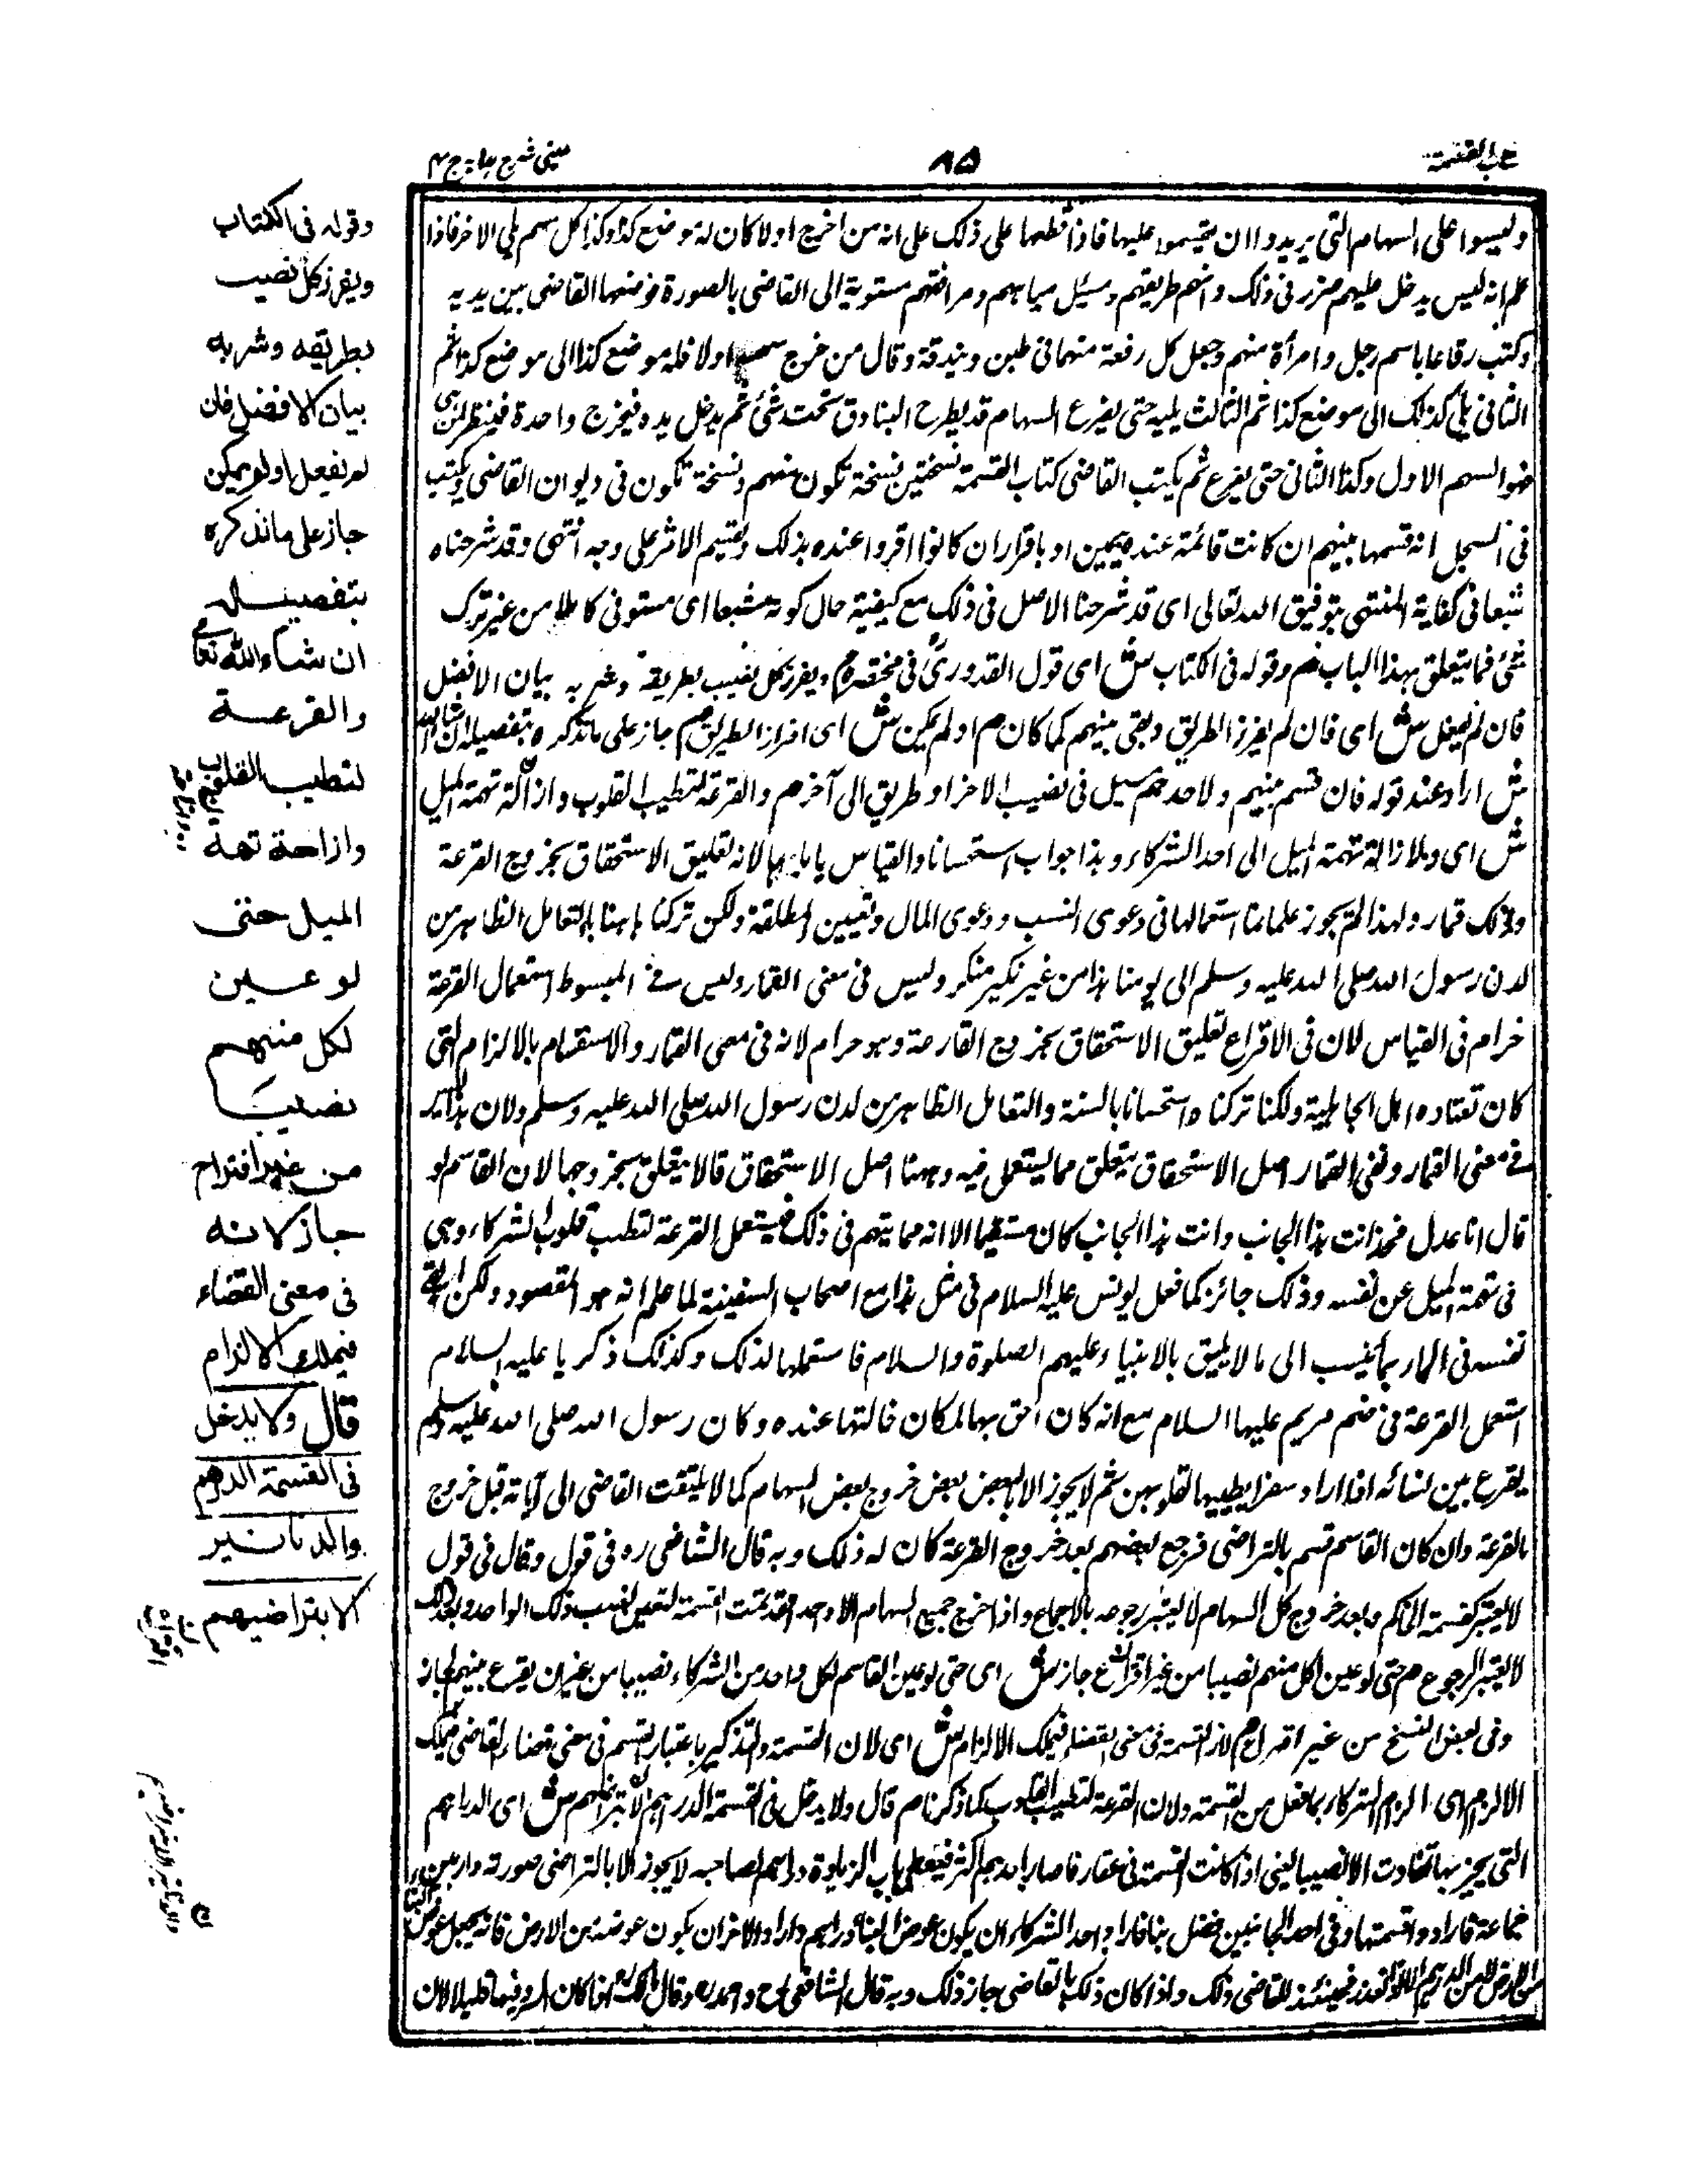 كتاب القسمة
٨٥
عينى شرح هدايه ج ٤
وليسوا على السهام التى يريدوا ان يقيسوا عليها فاذا قطعها على ذلك على انه من اخرج اولا كان له موضع كذا وكذا كل سهم يلى الاخر فاذا
علم انه ليس يدخل عليهم ضرر فى ذلك وانهم طريقهم ومسيل مياههم ومرافقهم مستوية الى القاضى بالصورة فوضعها القاضى بين يديه
وكتب رقاعا باسم رجل وامرأة منهم وجعل كل رقعة منهما فى طين وبندقة وقال من خرج سهمه اولا فله موضع كذا الى موضع كذا ثم
الثانى يلى كذلك الى موضع كذا ثم الثالث يليه حتى يفرع السهام قد يطرح البنادق تحت شئ ثم يدخل يده فيخرج واحدة فينظر لمن هى
فهو السهم الاول وكذا الثانى حتى يفرع ثم يكتب القاضى كتاب القسمة نسختين نسخة تكون منهم ونسخة تكون فى ديوان القاضى ويكتب
فى السجل انه قسمها بينهم ان كانت قائمة عنده بيمين او باقرار ان كانوا اقروا عنده بذلك وتقسيم الاثر على وجه انتهى وقد شرحناه
شبعا فى كفاية المنتهى بتوفيق الله تعالى اى قد شرحنا الاصل فى ذلك مع كيفية حال كونه مشبعا اى مستوفى كاملا من غير ترك
شئ فما يتعلق بهذا الباب ثم وقوله فى الكتاب ش اى قول القدورى فى مختصره م ويفرز كل نصيب بطريقه وشربه بيان الافضل
فان لم يفعل ش اى فان لم يفرز الطريق وبقى بينهم كما كان م او لم يمكن ش اى افراز الطريق م جاز على ما نذكره بتفصيله ان شاء الله
ش اراد عند قوله فان قسم بينهم ولاحدهم مسيل فى نصيب الاخر او طريق الى آخره م والقرعة لتطييب القلوب وازالة تهمة الميل
ش اى ولازالة تهمة الميل الى احد الشركاء وهذا جواب استحسانا والقياس يأباها لانه تعليق الاستحقاق بخروج القرعة
وذلك قمار ولهذا لم يجوز علمائنا استعمالها فى دعوى النسب ودعوى المال وتعيين المطلقة ولكن تركنا ههنا بالتعامل الظاهر من
لدن رسول الله صلى الله عليه وسلم الى يومنا هذا من غير نكير منكر وليس فى معنى القمار وليس فى المبسوط استعمال القرعة
حرام فى القياس لان فى الاقراع تعليق الاستحقاق بخروج القارعة وهو حرام لانه فى معنى القمار والاستقسام بالالزام التى
كان تعتاده اهل الجاهلية ولكنا تركناه استحسانا بالسنة والتعامل الظاهر من لدن رسول الله صلى الله عليه وسلم ولان هذا ليس
فى معنى القمار وفى القمار اصل الاستحقاق يتعلق مما يستعمل فيه وههنا اصل الاستحقاق قالا يتعلق بخروجها لان القاسم لو
قال انا عدل فخذ انت هذا الجانب وانت هذا الجانب كان مستقيما الا انه مما يتهم فى ذلك فيستعمل القرعة لتطيب قلوب الشركاء وهى
فى تهمة الميل عن نفسه وذلك جائز كما فعل يونس عليه السلام فى مثل هذا مع اصحاب السفينة لما علم انه هو المقصود ولكن لو القى
نفسه فى الماء ربما ينسب الى ما لا يليق بالانبياء وعليهم الصلوة والسلام فاستعملها لذلك وكذلك ذكريا عليه السلام
استعمل القرعة فى ضم مريم عليها السلام مع انه كان احق بها لمكان خالتها عنده وكان رسول الله صلى الله عليه وسلم
يقرع بين نسائه اذا اراد سفرا يطيبها لقلوبهن ثم لا يجوز الا البعض بعض خروج بعض السهام كما لا يلتفت القاضى الى آياته قبل خروج
بالقرعة وان كان القاسم قسم بالتراضى فرجع بعضهم بعد خروج القرعة كان له ذلك وبه قال الشافعى ره فى قول وقال فى قول
لا يعتبر كقسمة الحاكم وبعد خروج كل السهام لا يعتبر رجوعه بالاجماع واذا خرج جميع السهام الا واحد فقد تمت القسمة لتعين نصيب ذلك الواحد وبعد ذلك
لا يعتبر الرجوع م حتى لو عين لكل منهم نصيبا من غير اقراع جاز ش اى حتى لو عين القاسم لكل واحد من الشركاء نصيبا من غير ان يقرع بينهم لجاز
وفى بعض النسخ من غير اقتراع م لان القسمة فى معنى القضاء فيملك الالزام ش اى لان القسمة والتذكير باعتبار القسم فى معنى قضاء القاضى فيملك
الالزام اى الزام الشركاء بما فعل من القسمة ولان القرعة لتطييب القلوب كما ذكرنا م قال ولا يدخل فى القسمة الدراهم الا بتراضيهم ش اى الدراهم
التى يجبر بها تفاوت الانصبا يعنى اذا كانت القسمة فى عقار
وقوله فى الكتاب
ويفرز كل نصيب
بطريقه وشربه
بيان الافضل فان
لم يفعل او لم يمكن
جاز على ما نذكره
بتفصيله
ان شاء الله تعالى
والقرعة
لتطيب القلوب
وازاحة تهمة
الميل حتى
لو عين
لكل منهم
نصيبا
من غير اقتراع
جاز لانه
فى معنى القضاء
فيملك الالزام
قال ولا يدخل
فى القسمة الدراهم
والدنانير
الا بتراضيهم